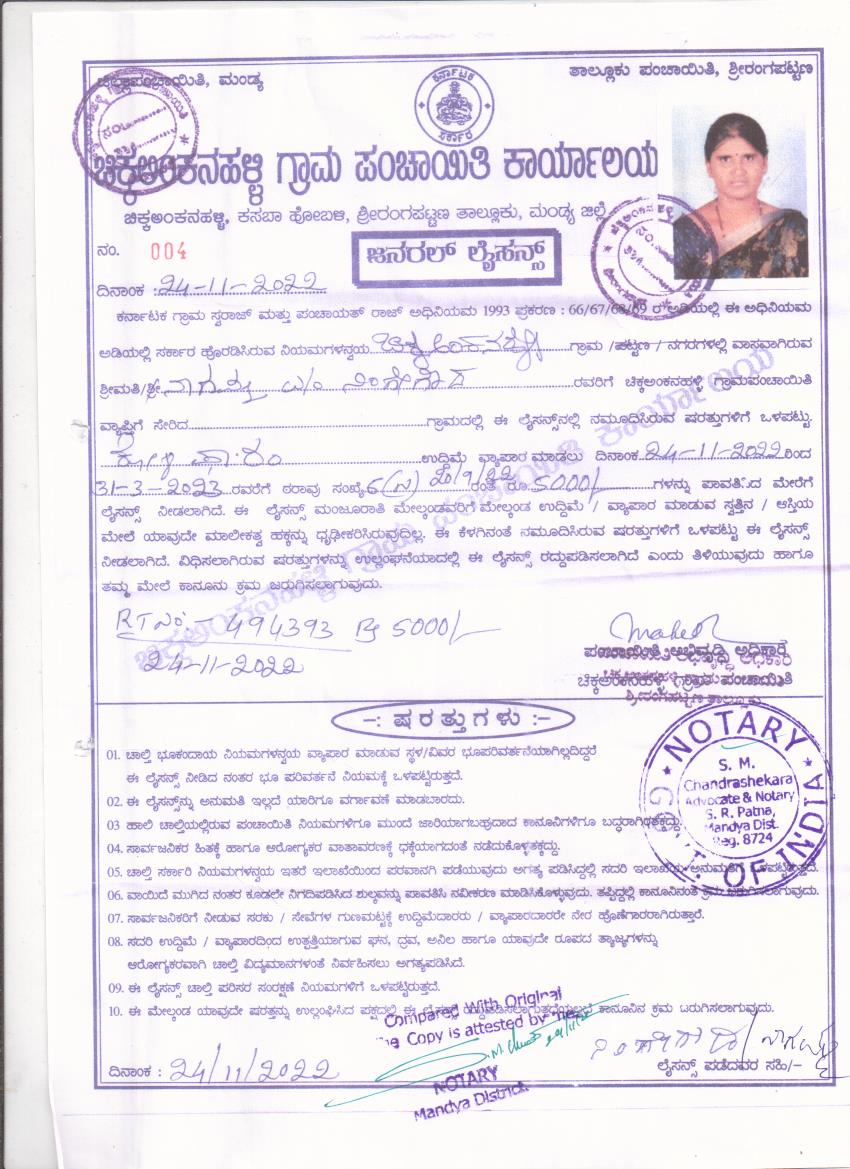 ಜಿಲ್ಲಾ ಪಂಚಾಯಿತಿ, ಮಂಡ್ಯ
ತಾಲ್ಲೂಕು ಪಂಚಾಯಿತಿ, ಶ್ರೀರಂಗಪಟ್ಟಣ
ಕರ್ನಾಟಕ
ಸರ್ಕಾರ
ಚಿಕ್ಕಅಂಕನಹಳ್ಳಿ ಗ್ರಾಮ ಪಂಚಾಯಿತಿ ಕಾರ್ಯಾಲಯ
ಚಿಕ್ಕಅಂಕನಹಳ್ಳಿ, ಕಸಬಾ ಹೋಬಳಿ, ಶ್ರೀರಂಗಪಟ್ಟಣ ತಾಲ್ಲೂಕು, ಮಂಡ್ಯ ಜಿಲ್ಲೆ
ನಂ. 004
ಜನರಲ್ ಲೈಸನ್ಸ್
ದಿನಾಂಕ : 24-11-2022
ಕರ್ನಾಟಕ ಗ್ರಾಮ ಸ್ವರಾಜ್ ಮತ್ತು ಪಂಚಾಯತ್ ರಾಜ್ ಅಧಿನಿಯಮ 1993 ಪ್ರಕರಣ : 66/67/68/69 ರ ಅಡಿಯಲ್ಲಿ ಈ ಅಧಿನಿಯಮ
ಅಡಿಯಲ್ಲಿ ಸರ್ಕಾರ ಹೊರಡಿಸಿರುವ ನಿಯಮಗಳನ್ವಯ ಚಿಕ್ಕಅಂಕನಹಳ್ಳಿ ಗ್ರಾಮ /ಪಟ್ಟಣ / ನಗರಗಳಲ್ಲಿ ವಾಸವಾಗಿರುವ
ಶ್ರೀಮತಿ/ಶ್ರೀ ನಾಗಮ್ಮ W/o ನಿಂಗೇಗೌಡ ರವರಿಗೆ ಚಿಕ್ಕಅಂಕನಹಳ್ಳಿ ಗ್ರಾಮಪಂಚಾಯಿತಿ
ವ್ಯಾಪ್ತಿಗೆ ಸೇರಿದ ಗ್ರಾಮದಲ್ಲಿ ಈ ಲೈಸನ್ಸ್‌ನಲ್ಲಿ ನಮೂದಿಸಿರುವ ಷರತ್ತುಗಳಿಗೆ ಒಳಪಟ್ಟು.
ಕೋಳಿ ಫಾರಂ ಉದ್ದಿಮೆ ವ್ಯಾಪಾರ ಮಾಡಲು ದಿನಾಂಕ 24-11-2022 ರಿಂದ
31-3-2023 ರವರೆಗೆ ಠರಾವು ಸಂಖ್ಯೆ 6 ರಂತೆ ರೂ 5000/- ಗಳನ್ನು ಪಾವತಿಸಿದ ಮೇರೆಗೆ
ಲೈಸೆನ್ಸ್ ನೀಡಲಾಗಿದೆ. ಈ ಲೈಸೆನ್ಸ್ ಮಂಜೂರಾತಿ ಮೇಲ್ಕಂಡವರಿಗೆ ಮೇಲ್ಕಂಡ ಉದ್ದಿಮೆ / ವ್ಯಾಪಾರ ಮಾಡುವ ಸ್ವತ್ತಿನ / ಆಸ್ತಿಯ
ಮೇಲೆ ಯಾವುದೇ ಮಾಲೀಕತ್ವ ಹಕ್ಕನ್ನು ಧೃಢೀಕರಿಸಿರುವುದಿಲ್ಲ. ಈ ಕೆಳಗಿನಂತೆ ನಮೂದಿಸಿರುವ ಷರತ್ತುಗಳಿಗೆ ಒಳಪಟ್ಟು ಈ ಲೈಸೆನ್ಸ್
ನೀಡಲಾಗಿದೆ. ವಿಧಿಸಲಾಗಿರುವ ಷರತ್ತುಗಳನ್ನು ಉಲ್ಲಂಘನೆಯಾದಲ್ಲಿ ಈ ಲೈಸೆನ್ಸ್ ರದ್ದುಪಡಿಸಲಾಗಿದೆ ಎಂದು ತಿಳಿಯುವುದು ಹಾಗೂ
ತಮ್ಮ ಮೇಲೆ ಕಾನೂನು ಕ್ರಮ ಜರುಗಿಸಲಾಗುವುದು.
RT No:- 494393 Rs 5000/-
24-11-2022
ಪಂಚಾಯಿತಿ ಅಭಿವೃದ್ಧಿ ಅಧಿಕಾರಿ
ಚಿಕ್ಕಅಂಕನಹಳ್ಳಿ ಗ್ರಾಮ ಪಂಚಾಯಿತಿ
ಶ್ರೀರಂಗಪಟ್ಟಣ ತಾಲ್ಲೂಕು
-: ಷರತ್ತುಗಳು :-
01. ಚಾಲ್ತಿ ಭೂಕಂದಾಯ ನಿಯಮಗಳನ್ವಯ ವ್ಯಾಪಾರ ಮಾಡುವ ಸ್ಥಳ/ವಿವರ ಭೂಪರಿವರ್ತನೆಯಾಗಿಲ್ಲದಿದ್ದರೆ
ಈ ಲೈಸೆನ್ಸ್ ನೀಡಿದ ನಂತರ ಭೂ ಪರಿವರ್ತನೆ ನಿಯಮಕ್ಕೆ ಒಳಪಟ್ಟಿರುತ್ತದೆ.
02. ಈ ಲೈಸೆನ್ಸ್‌ನ್ನು ಅನುಮತಿ ಇಲ್ಲದೆ ಯಾರಿಗೂ ವರ್ಗಾವಣೆ ಮಾಡಬಾರದು.
03 ಹಾಲಿ ಚಾಲ್ತಿಯಲ್ಲಿರುವ ಪಂಚಾಯಿತಿ ನಿಯಮಗಳಿಗೂ ಮುಂದೆ ಜಾರಿಯಾಗಬಹುದಾದ ಕಾನೂನಿಗಳಿಗೂ ಬದ್ಧರಾಗಿರತಕ್ಕದ್ದು.
04. ಸಾರ್ವಜನಿಕರ ಹಿತಕ್ಕೆ ಹಾಗೂ ಆರೋಗ್ಯಕರ ವಾತಾವರಣಕ್ಕೆ ಧಕ್ಕೆಯಾಗದಂತೆ ನಡೆದುಕೊಳ್ಳತಕ್ಕದ್ದು.
05. ಚಾಲ್ತಿ ಸರ್ಕಾರಿ ನಿಯಮಗಳನ್ವಯ ಇತರೆ ಇಲಾಖೆಯಿಂದ ಪರವಾನಗಿ ಪಡೆಯುವುದು ಅಗತ್ಯ ಪಡಿಸಿದ್ದಲ್ಲಿ ಸದರಿ ಇಲಾಖೆಯ ಅನುಮತಿಗೆ ಒಳಪಟ್ಟಿರುತ್ತದೆ.
06. ವಾಯಿದೆ ಮುಗಿದ ನಂತರ ಕೂಡಲೇ ನಿಗದಿಪಡಿಸಿದ ಶುಲ್ಕವನ್ನು ಪಾವತಿಸಿ ನವೀಕರಣ ಮಾಡಿಸಿಕೊಳ್ಳುವುದು. ತಪ್ಪಿದ್ದಲ್ಲಿ ಕಾನೂನಿನಂತೆ ಕ್ರಮ ಜರುಗಿಸಲಾಗುವುದು.
07. ಸಾರ್ವಜನಿಕರಿಗೆ ನೀಡುವ ಸರಕು / ಸೇವೆಗಳ ಗುಣಮಟ್ಟಕ್ಕೆ ಉದ್ದಿಮೆದಾರರು / ವ್ಯಾಪಾರದಾರರೇ ನೇರ ಹೊಣೆಗಾರರಾಗಿರುತ್ತಾರೆ.
08. ಸದರಿ ಉದ್ದಿಮೆ / ವ್ಯಾಪಾರದಿಂದ ಉತ್ಪತ್ತಿಯಾಗುವ ಘನ, ದ್ರವ, ಅನಿಲ ಹಾಗೂ ಯಾವುದೇ ರೂಪದ ತ್ಯಾಜ್ಯಗಳನ್ನು
ಆರೋಗ್ಯಕರವಾಗಿ ಚಾಲ್ತಿ ವಿದ್ಯಮಾನಗಳಂತೆ ನಿರ್ವಹಿಸಲು ಅಗತ್ಯಪಡಿಸಿದೆ.
09. ಈ ಲೈಸೆನ್ಸ್ ಚಾಲ್ತಿ ಪರಿಸರ ಸಂರಕ್ಷಣೆ ನಿಯಮಗಳಿಗೆ ಒಳಪಟ್ಟಿರುತ್ತದೆ.
10. ಈ ಮೇಲ್ಕಂಡ ಯಾವುದೇ ಷರತ್ತನ್ನು ಉಲ್ಲಂಘಿಸಿದ ಪಕ್ಷದಲ್ಲಿ ಈ ಕಾನೂನಿನ ಕ್ರಮ ಜರುಗಿಸಲಾಗುವುದು.
NOTARY
GOVT OF INDIA
S. M.
Chandrashekara
Advocate & Notary
S. R. Patna,
Mandya Dist.
Reg. 8724
Compared With Original
The Copy is attested by me
NOTARY
Mandya District.
ದಿನಾಂಕ : 24/11/2022
ಲೈಸೆನ್ಸ್ ಪಡೆದವರ ಸಹಿ/-